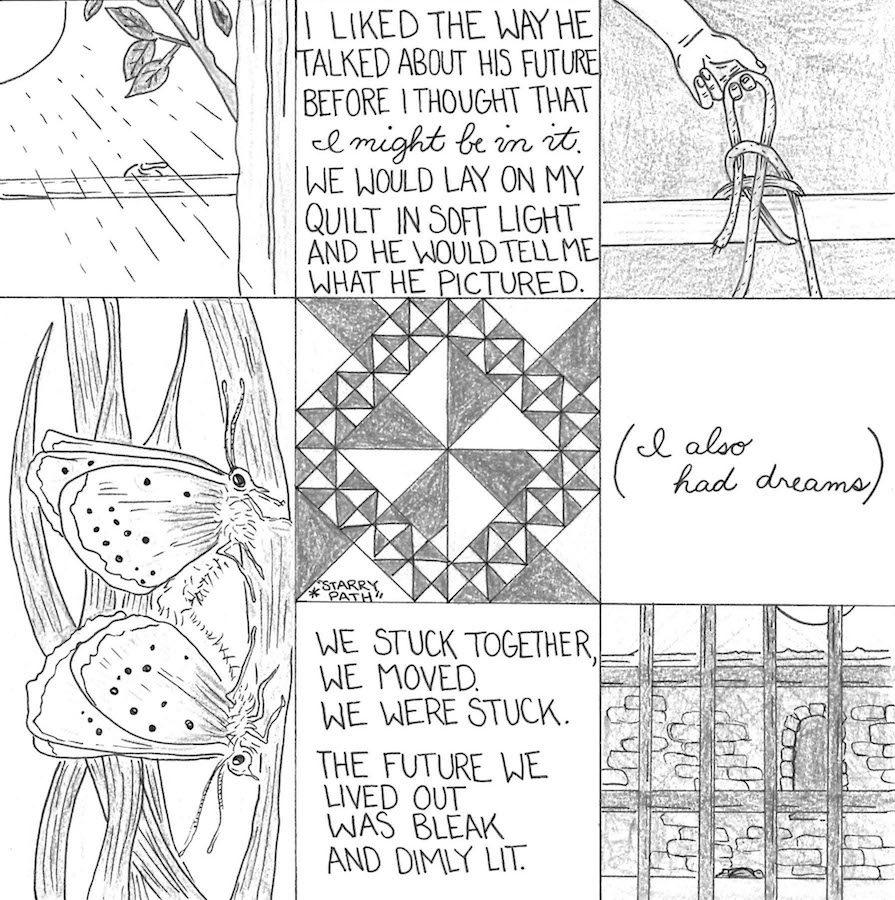 I LIKED THE WAY HE
TALKED ABOUT HIS FUTURE
BEFORE I THOUGHT THAT
I might be in it.
WE WOULD LAY ON MY
QUILT IN SOFT LIGHT
AND HE WOULD TELL ME
WHAT HE PICTURED.
(I also
had dreams)
*"STARRY
PATH"
WE STUCK TOGETHER,
WE MOVED.
WE WERE STUCK.
THE FUTURE WE
LIVED OUT
WAS BLEAK
AND DIMLY LIT.